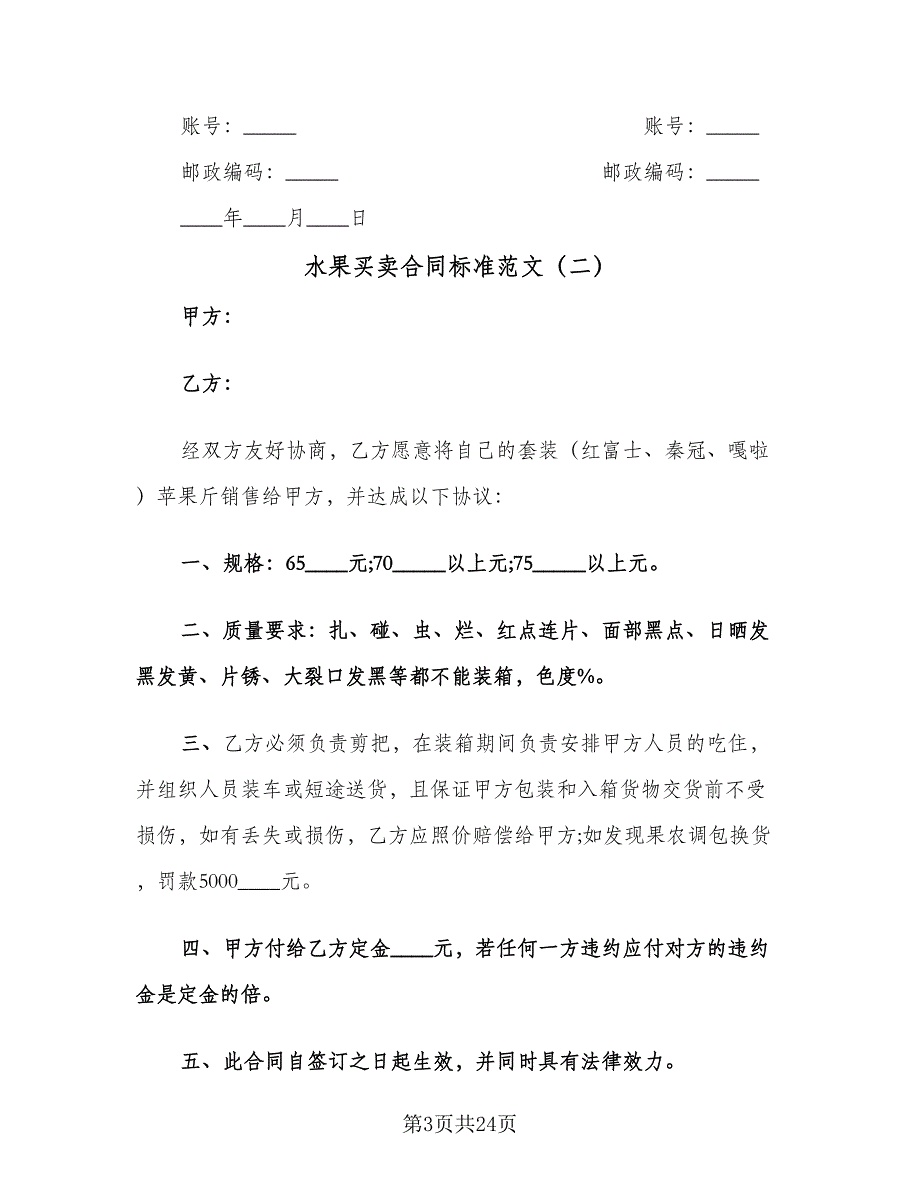 账号：_____ 账号：_____
邮政编码：_____ 邮政编码：_____
____年____月____日
水果买卖合同标准范文（二）
甲方：
乙方：
经双方友好协商，乙方愿意将自己的套装（红富士、秦冠、嘎啦
）苹果斤销售给甲方，并达成以下协议：
一、规格：65____元;70_____以上元;75_____以上元。
二、质量要求：扎、碰、虫、烂、红点连片、面部黑点、日晒发
黑发黄、片锈、大裂口发黑等都不能装箱，色度%。
三、乙方必须负责剪把，在装箱期间负责安排甲方人员的吃住，
并组织人员装车或短途送货，且保证甲方包装和入箱货物交货前不受
损伤，如有丢失或损伤，乙方应照价赔偿给甲方;如发现果农调包换货
，罚款5000____元。
四、甲方付给乙方定金____元，若任何一方违约应付对方的违约
金是定金的倍。
五、此合同自签订之日起生效，并同时具有法律效力。
第3页共24页